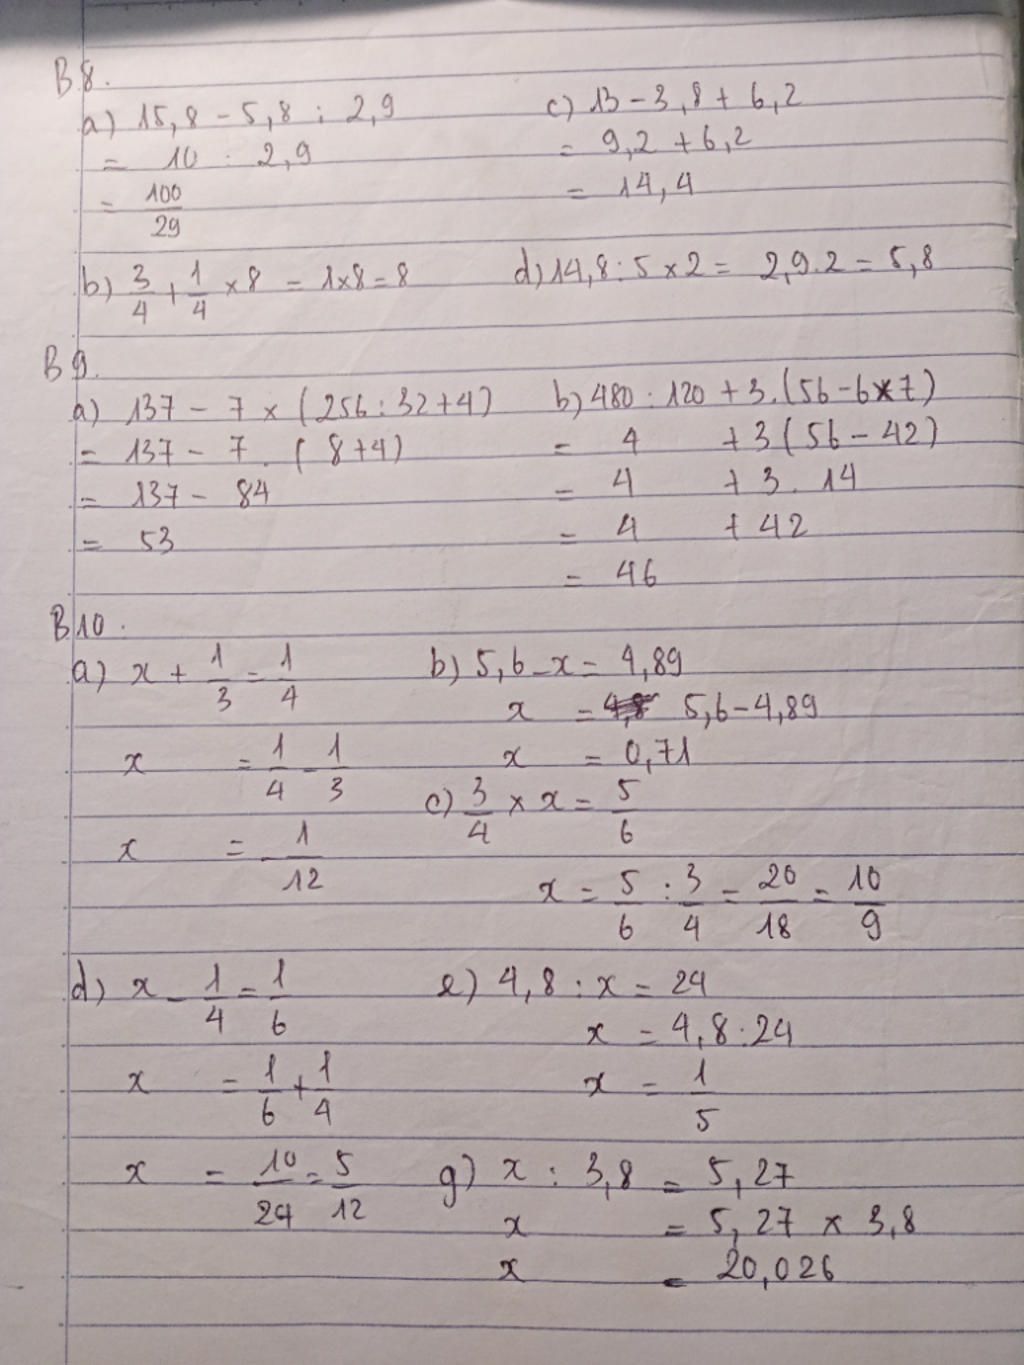 B8.
a) 15,8 - 5,8 : 2,9
= 10 : 2,9
= 100/29
c) 13 - 3,8 + 6,2
= 9,2 + 6,2
= 14,4
b) 3/4 + 1/4 × 8 = 1×8 = 8
d) 14,8 : 5 × 2 = 2,9.2 = 5,8
B9.
a) 137 - 7 × (256 : 32 + 4)
= 137 - 7 . (8+4)
= 137 - 84
= 53
b) 480 : 120 + 3.(56 - 6×7)
= 4 + 3(56 - 42)
= 4 + 3.14
= 4 + 42
= 46
B10.
a) x + 1/3 = 1/4
x = 1/4 - 1/3
x = -1/12
b) 5,6 - x = 4,89
x = 5,6 - 4,89
x = 0,71
c) 3/4 × x = 5/6
x = 5/6 : 3/4 = 20/18 = 10/9
d) x - 1/4 = 1/6
x = 1/6 + 1/4
x = 10/24 = 5/12
e) 4,8 : x = 24
x = 4,8 : 24
x = 1/5
g) x : 3,8 = 5,27
x = 5,27 × 3,8
x = 20,026